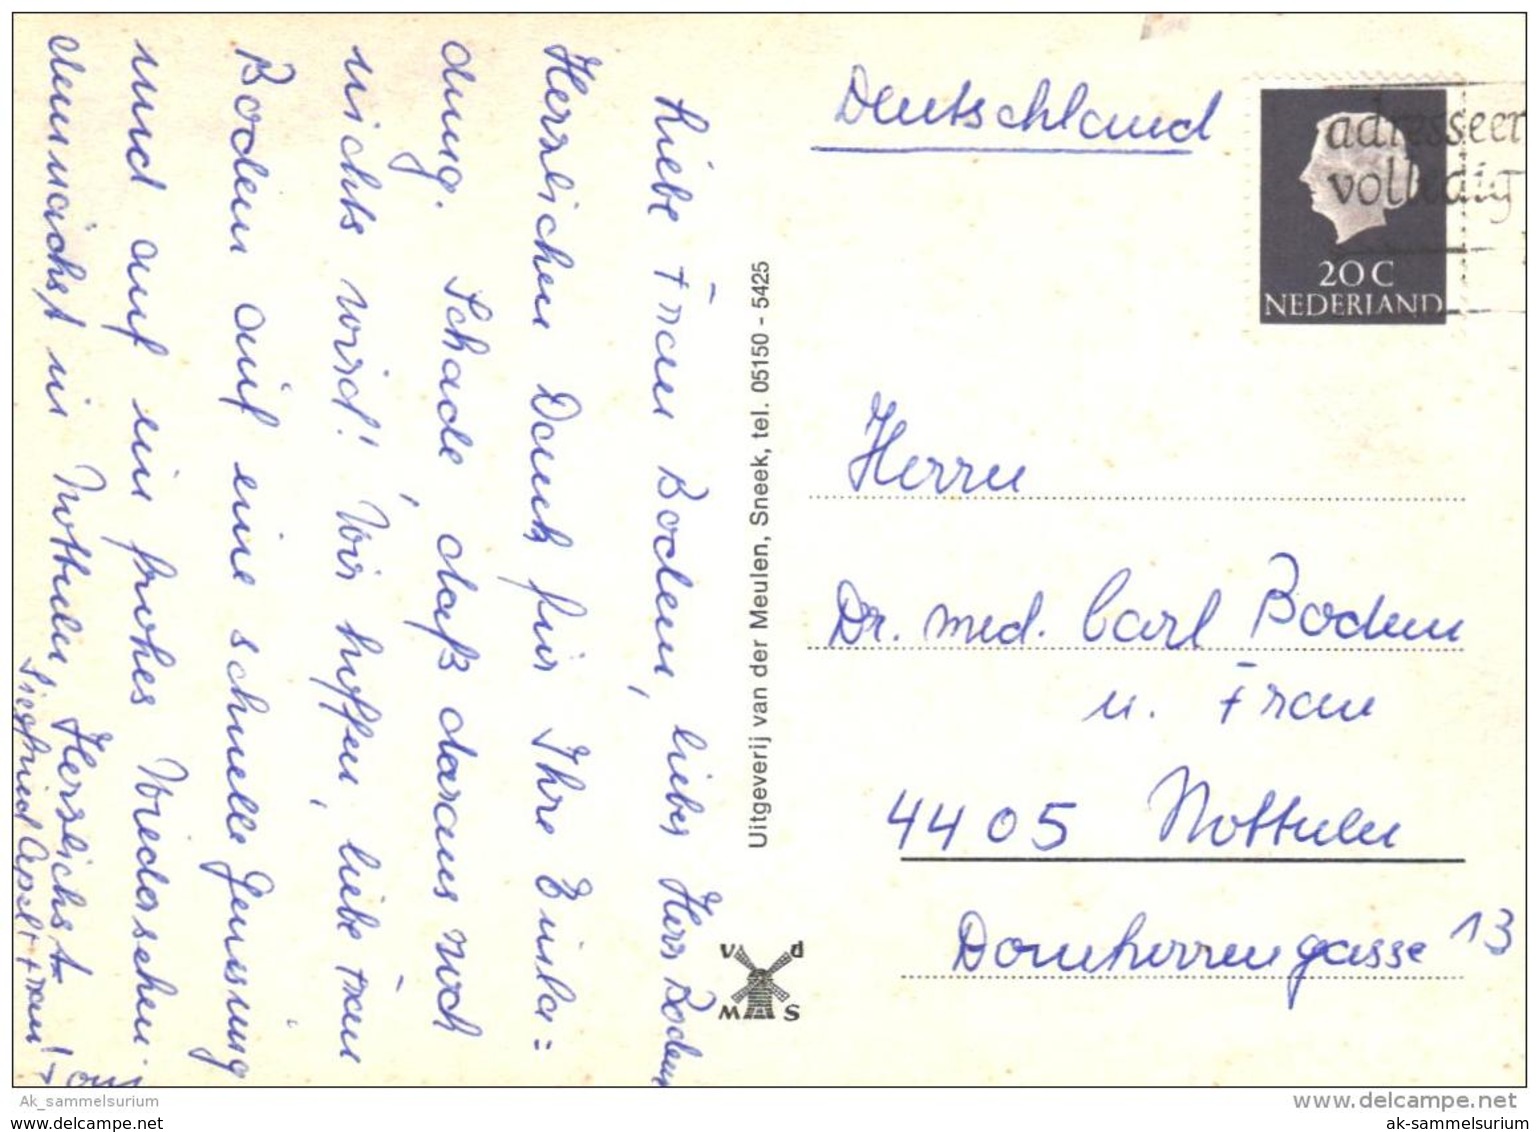 Liebe Frau Boden, lieber Herr Boden,
Herzlichen Dank für Ihre Einla=
dung. Schade, daß daraus noch
nichts wird! Wir hoffen, liebe Frau
Boden auf eine schnelle Genesung
und auf ein frohes Wiedersehen
demnächst in Nottuln. Herzlichst
Siegfried Apel + Frau!
Uitgeverij van der Meulen, Sneek, tel. 05150 - 5425
v d
M S
Deutschland
adresseer
volledig
20 C
NEDERLAND
Herrn
Dr. med. Carl Boden
u. Frau
4405 Nottuln
Domherrengasse 13
Ak_sammelsurium
www.delcampe.net
www.delcampe.net
ak-sammelsurium